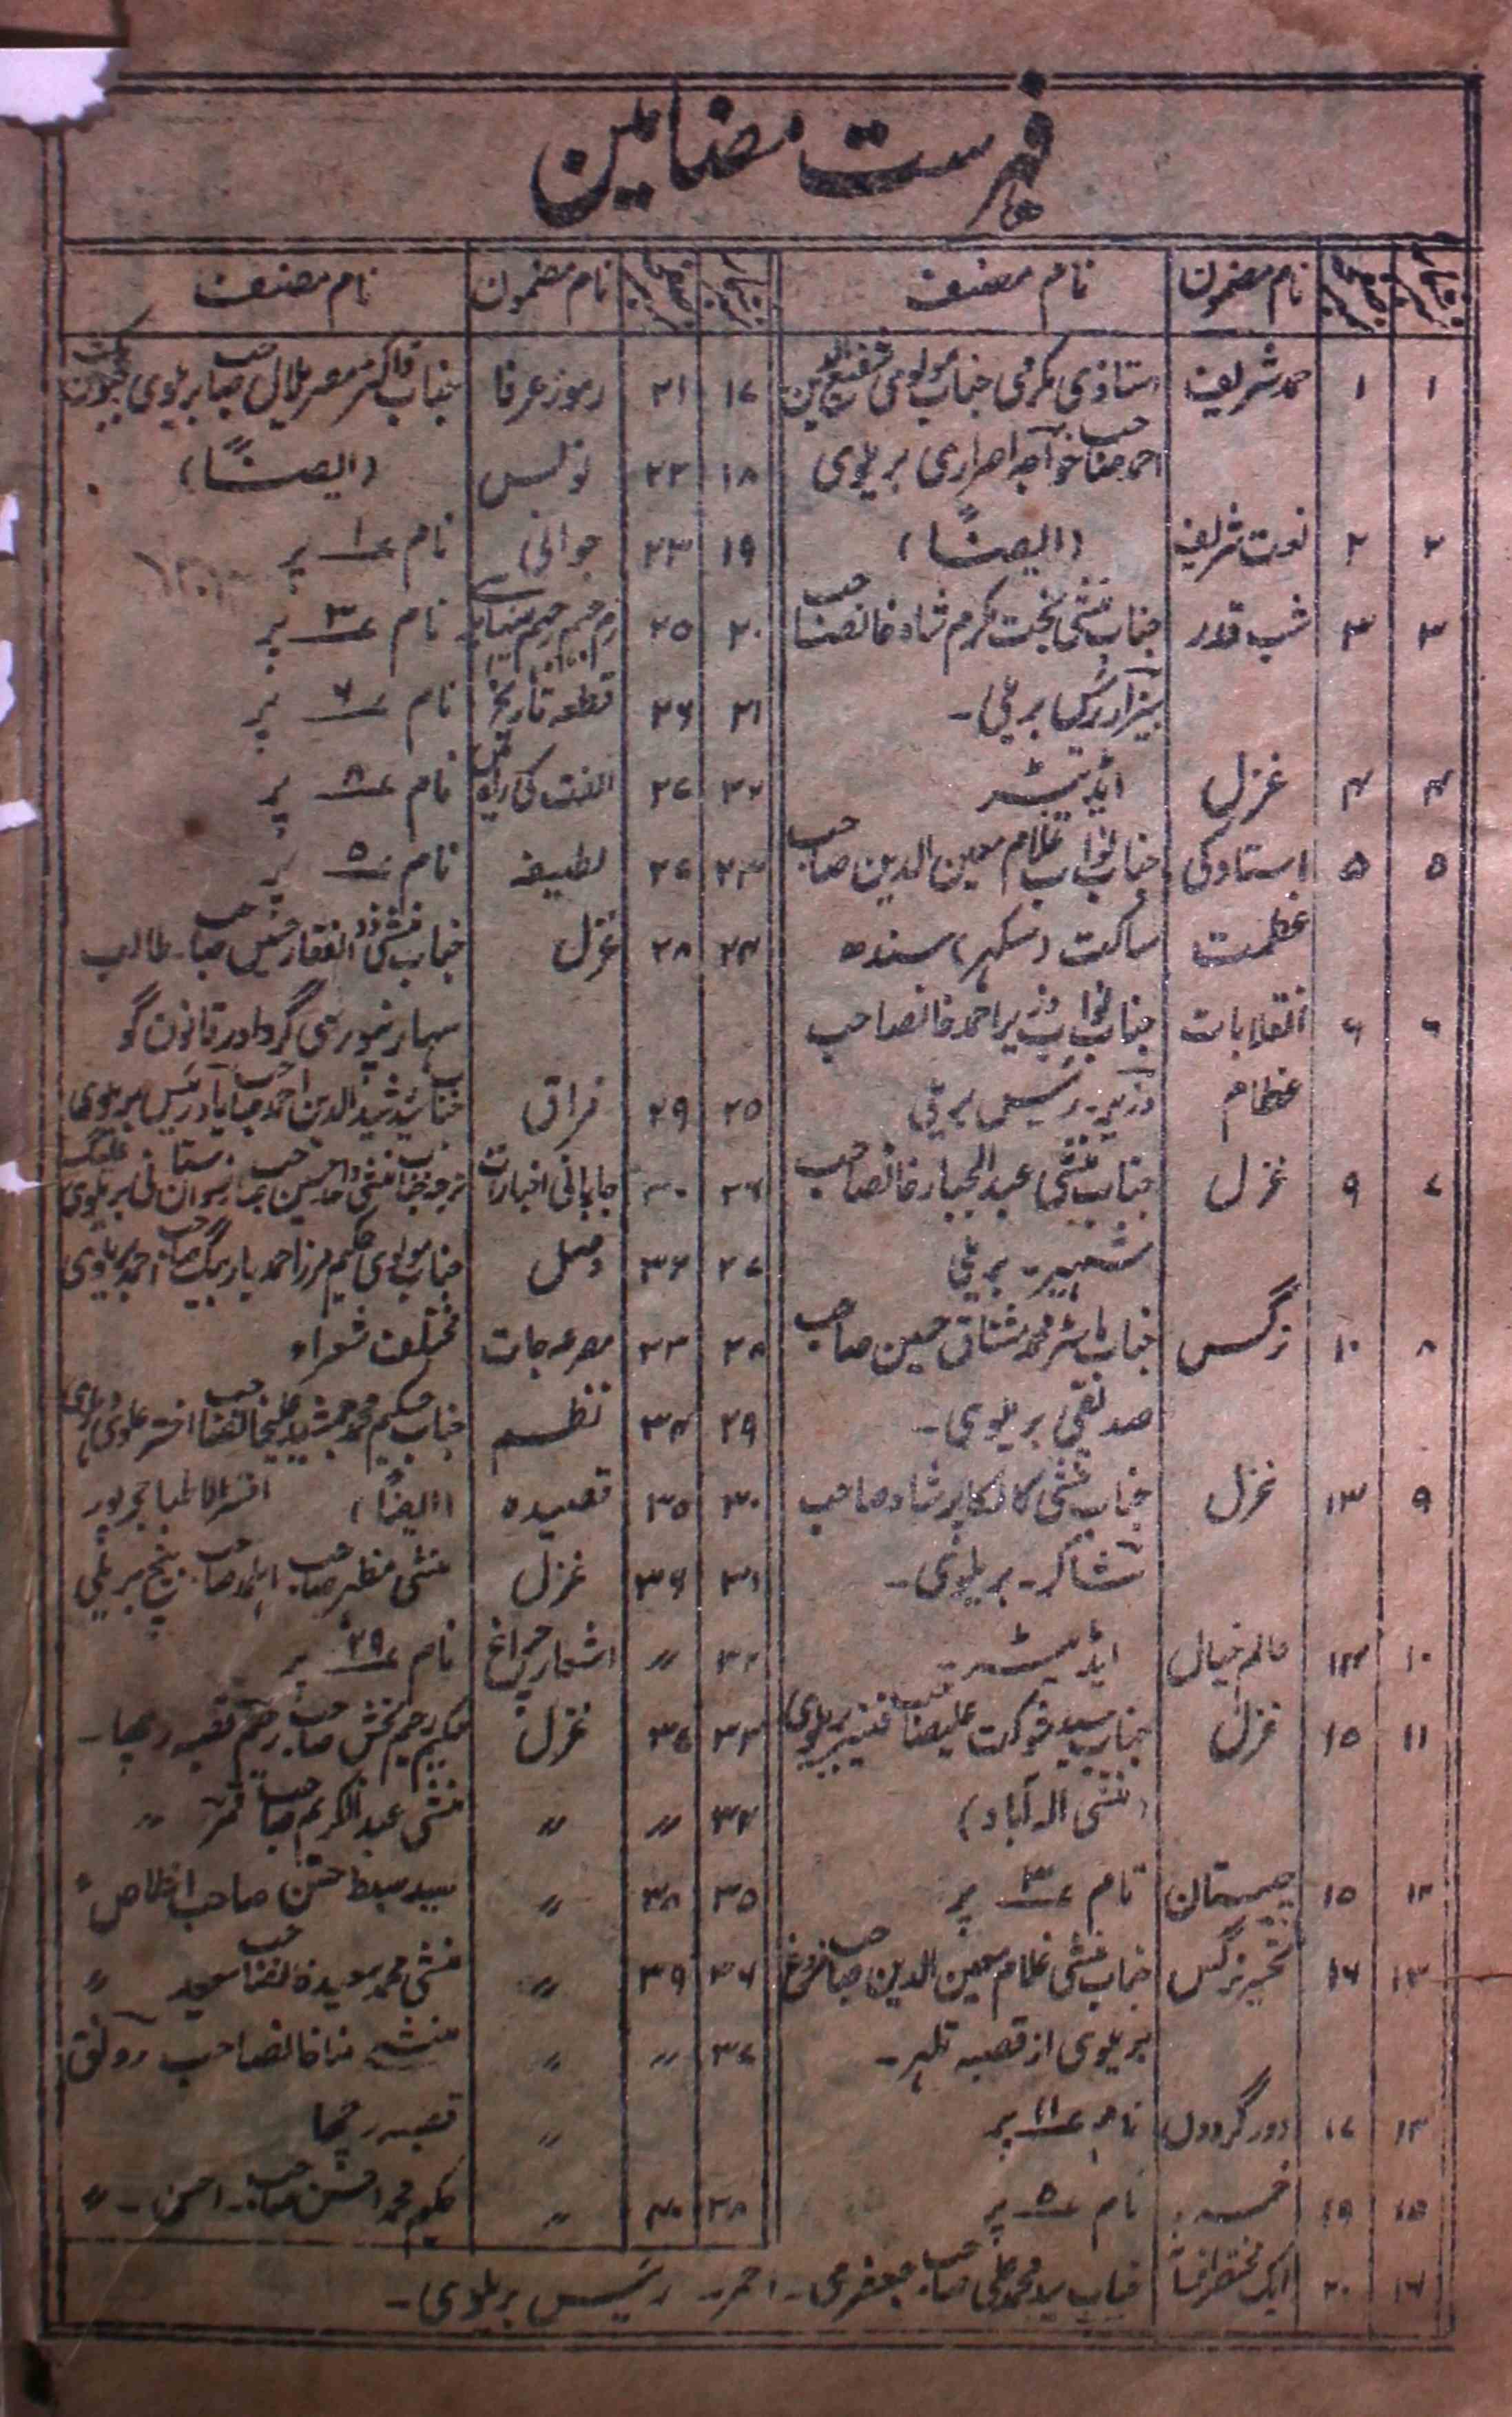 فہرست مضامین
نمبر شمار نمبر صفحہ نام مضمون نام مصنف
۱ ۱ حمد شریف استاذی مکرمی جناب مولوی شفیع الدین
احمد صاحب خواجہ احراری بریلوی
۲ ۲ نعت شریف (ایضاً)
۳ ۳ شب قدر جناب منشی بخت مکرم شاد خانصاحب
بیزار رئیس بریلی۔
۴ ۴ غزل اڈیٹر
۵ ۵ استاد کی جناب نواب غلام معین الدین صاحب
عظمت ساکت (سکہر) سندھ
۶ ۶ انقلابات جناب نواب وزیر احمد خانصاحب
عظام وزیر۔ رئیس بریلی
۷ ۹ غزل جناب منشی عبد الجبار خانصاحب
بریلی
۸ ۱۰ نرگس جناب ماسٹر محمد مشتاق حسین صاحب
صدیقی بریلوی۔
۹ ۱۳ غزل جناب منشی کالکا پرشاد صاحب
شاکر۔ بریلوی۔
۱۰ ۱۴ عالم خیال ایڈیٹر
۱۱ ۱۵ غزل جناب سید شوکت علیصاحب بریلوی
(منشی الہ آباد)
۱۲ ۱۵ چیستان نام ۳ پر
۱۳ ۱۶ نرگس جناب منشی غلام معین الدین صاحب فروغ
بریلوی از قصبہ تلہر۔
۱۴ ۱۷ دور گردوں نام ۱۱ پر
۱۵ ۱۹ خمسہ نام ۵ پر
۱۶ ۲۰ ایک مختصر افسانہ جناب سید محمد علی صاحب جعفری۔ احمر۔ رئیس بریلوی۔
نمبر شمار نمبر صفحہ نام مضمون نام مصنف
۱۷ ۲۱ رموز عرفا جناب ڈاکٹر مصر بلال صاحب بریلوی
۱۸ ۲۲ نوٹس (ایضاً)
۱۹ ۲۳ جوانی نام ۱ پر
۲۰ ۲۵ نام ۳ پر
۲۱ ۲۶ قطعہ تاریخ نام ۶ پر
۲۲ ۲۷ الفت کی راہ میں نام ۸ پر
۲۳ ۲۷ لطیفہ نام ۵ پر
۲۴ ۲۸ غزل جناب منشی ذوالفقار حسین صاحب طالب
سہارنپوری گرداور قانون گو
۲۵ ۲۹ فراق جناب سید رشید الدین احمد صاحب رئیس بریلوی
۲۶ ۳۰ جاپانی اخبارات
۲۷ ۳۲ وصل جناب مولوی حکیم مرزا احمد یار بیگ صاحب احمد بریلوی
۲۸ ۳۳ مصرعہ جات مختلف شعراء
۲۹ ۳۴ نظم جناب حکیم محمد جمشید علیخانصاحب اختر
۳۰ ۳۵ قصیدہ (ایضاً) افسر الاطبا
۳۱ ۳۶ غزل منشی مظہر صاحب
۳۲ 〃 اشعار چراغ نام ۲۹ پر
۳۳ ۳۷ غزل حکیم رحیم بخش صاحب رحیم قصبہ رچھا۔
۳۴ 〃 〃 منشی عبد الکریم صاحب قمر 〃
۳۵ ۳۸ 〃 سید سبط حسن صاحب اخلاص 〃
۳۶ ۳۹ 〃 منشی محمد سعید خانصاحب سعید 〃
۳۷ 〃 〃 منشی خانصاحب رونق
〃 قصبہ رچھا
۳۸ ۴۰ 〃 حکیم محمد احسن صاحب۔ احسن۔ 〃